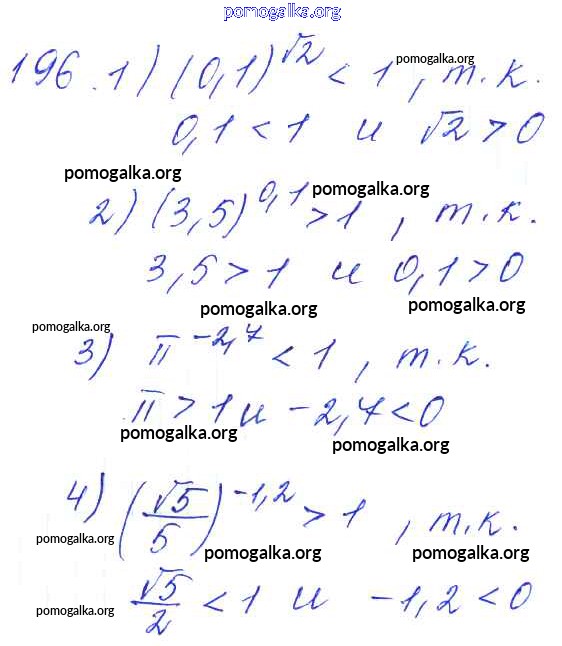 pomogalka.org
196. 1) (0,1)^√2 < 1, т.к. pomogalka.org
0,1 < 1 и √2 > 0
pomogalka.org
2) (3,5)^0,1 > 1, т.к. pomogalka.org
3,5 > 1 и 0,1 > 0
pomogalka.org pomogalka.org
pomogalka.org
3) π^-2,7 < 1, т.к.
π > 1 и -2,7 < 0
pomogalka.org pomogalka.org
4) (√5/5)^-1,2 > 1, т.к.
pomogalka.org pomogalka.org pomogalka.org
√5/2 < 1 и -1,2 < 0
pomogalka.org